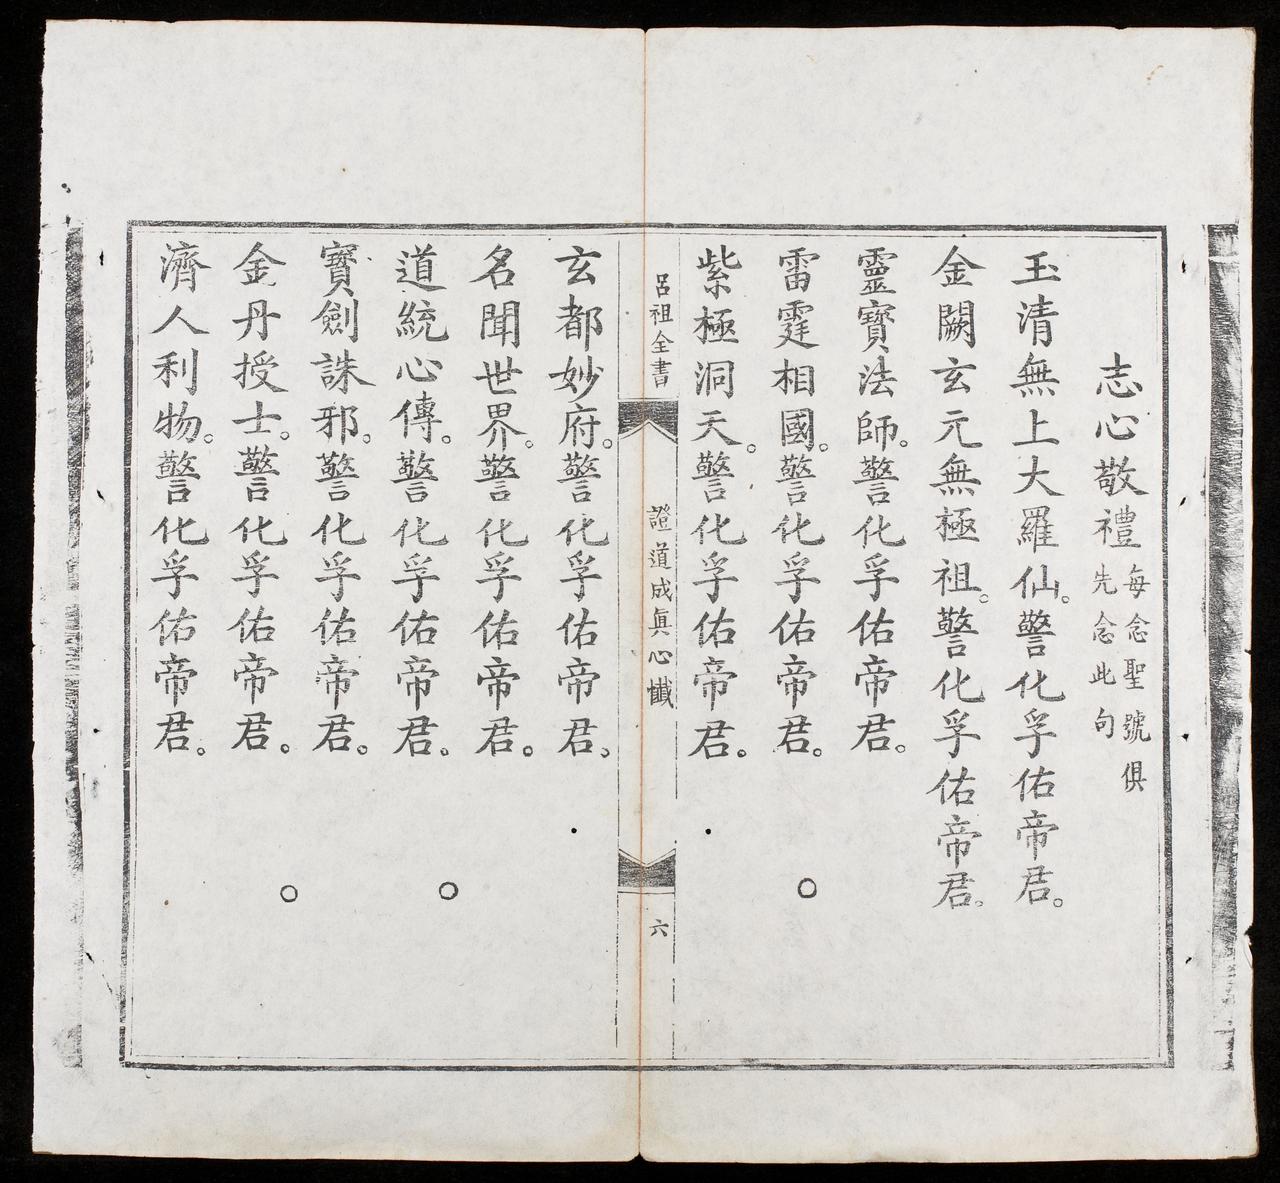 志心敬禮每念聖號俱先念此句
玉清無上大羅仙。警化孚佑帝君。
金闕玄元無極祖。警化孚佑帝君。
靈寶法師。警化孚佑帝君。
雷霆相國。警化孚佑帝君。
紫極洞天。警化孚佑帝君。
呂祖全書
證道成眞心懺
六
玄都妙府。警化孚佑帝君。
名聞世界。警化孚佑帝君。
道統心傳。警化孚佑帝君。
寶劍誅邪。警化孚佑帝君。
金丹授士。警化孚佑帝君。
濟人利物。警化孚佑帝君。